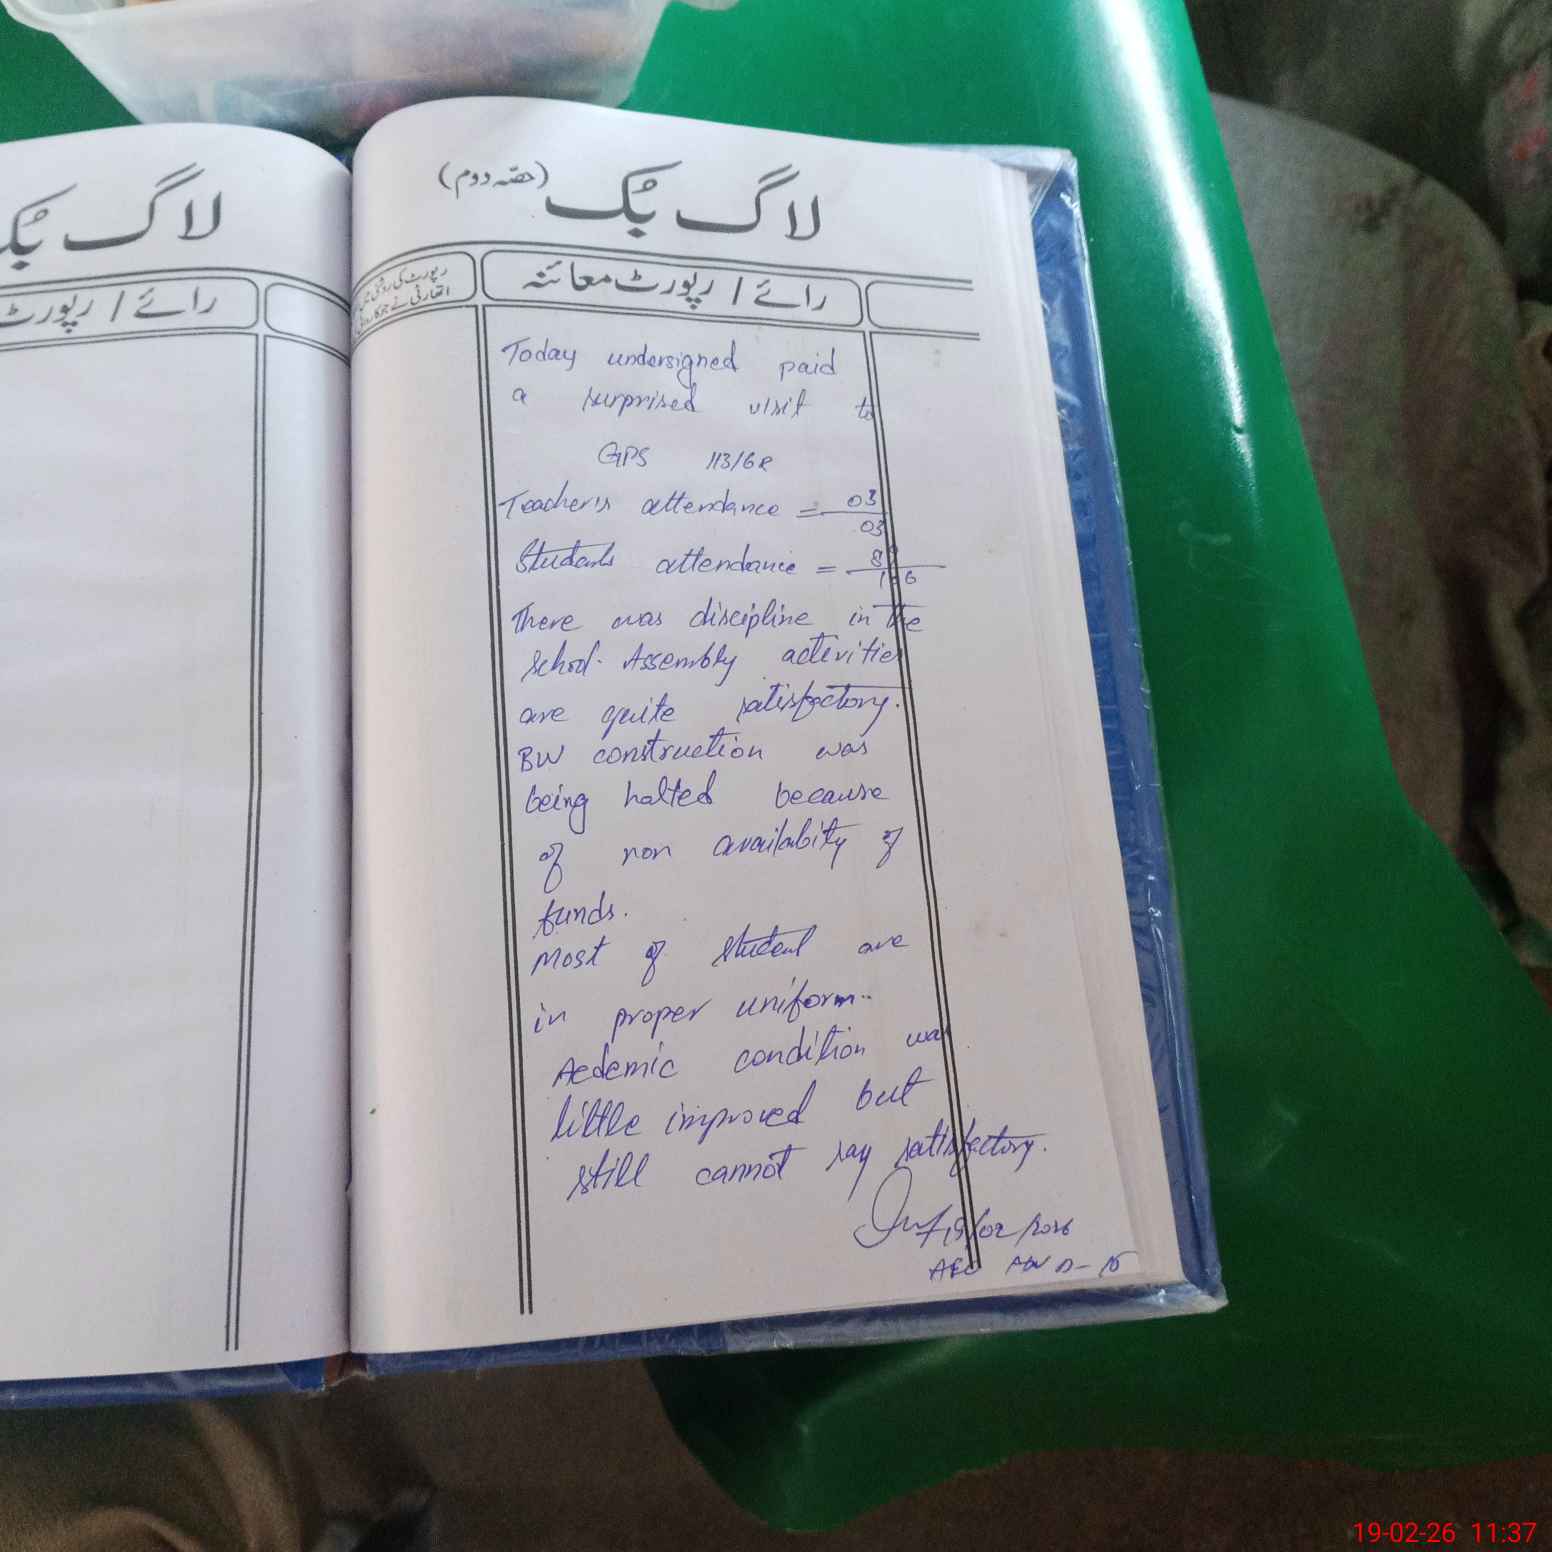 لاگ بک
رائے / رپورٹ
لاگ بک (حصہ دوم)
رائے / رپورٹ معائنہ
رپورٹ کی روشنی میں
اتھارٹی نے جو کاروائی
Today undersigned paid
a surprised visit to
GPS 113/6R
Teacher's attendance = 03/03
Students attendance =
There was discipline in the
school. Assembly activities
are quite satisfactory.
BW construction was
being halted because
of non availabity of
funds.
Most of student are
in proper uniform.
Aedemic condition was
little improved but
still cannot say satisfactory.
19/02/2026
AEO
19-02-26 11:37